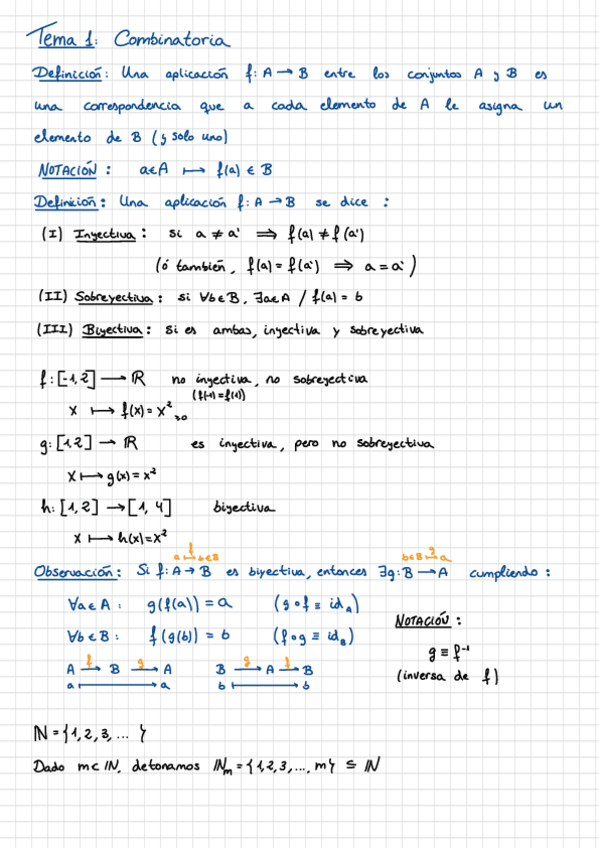 Tema 1: Combinatoria
Definición: Una aplicación f: A → B entre los conjuntos A y B es
una correspondencia que a cada elemento de A le asigna un
elemento de B (y solo uno)
NOTACIÓN: a∈A ↦ f(a) ∈ B
Definición: Una aplicación f: A → B se dice:
(I) Inyectiva: si a ≠ a' ⟹ f(a) ≠ f(a')
(ó también, f(a) = f(a') ⟹ a = a')
(II) Sobreyectiva: si ∀b∈B, ∃a∈A / f(a) = b
(III) Biyectiva: Si es ambas, inyectiva y sobreyectiva
f: [-1,2] ⟶ ℝ no inyectiva, no sobreyectiva
(f(-1)=f(1))
x ⟼ f(x) = x² ≥0
g: [1,2] → ℝ es inyectiva, pero no sobreyectiva
x ⟼ g(x) = x²
h: [1,2] → [1,4] biyectiva
x ⟼ h(x) = x²
a ↦ b∈B f b∈B ↦ a g
Observación: Si f: A → B es biyectiva, entonces ∃g: B ⟶ A cumpliendo:
∀a∈A: g(f(a)) = a (g∘f ≡ id_A)
NOTACIÓN:
∀b∈B: f(g(b)) = b (f∘g ≡ id_B)
g ≡ f⁻¹
A —f→ B —g→ A B —g→ A —f→ B
(inversa de f)
a ⟼ a b ⟼ b
ℕ = {1,2,3,... }
Dado m∈ℕ, detonamos ℕ_m = {1,2,3,...,m} ⊆ ℕ